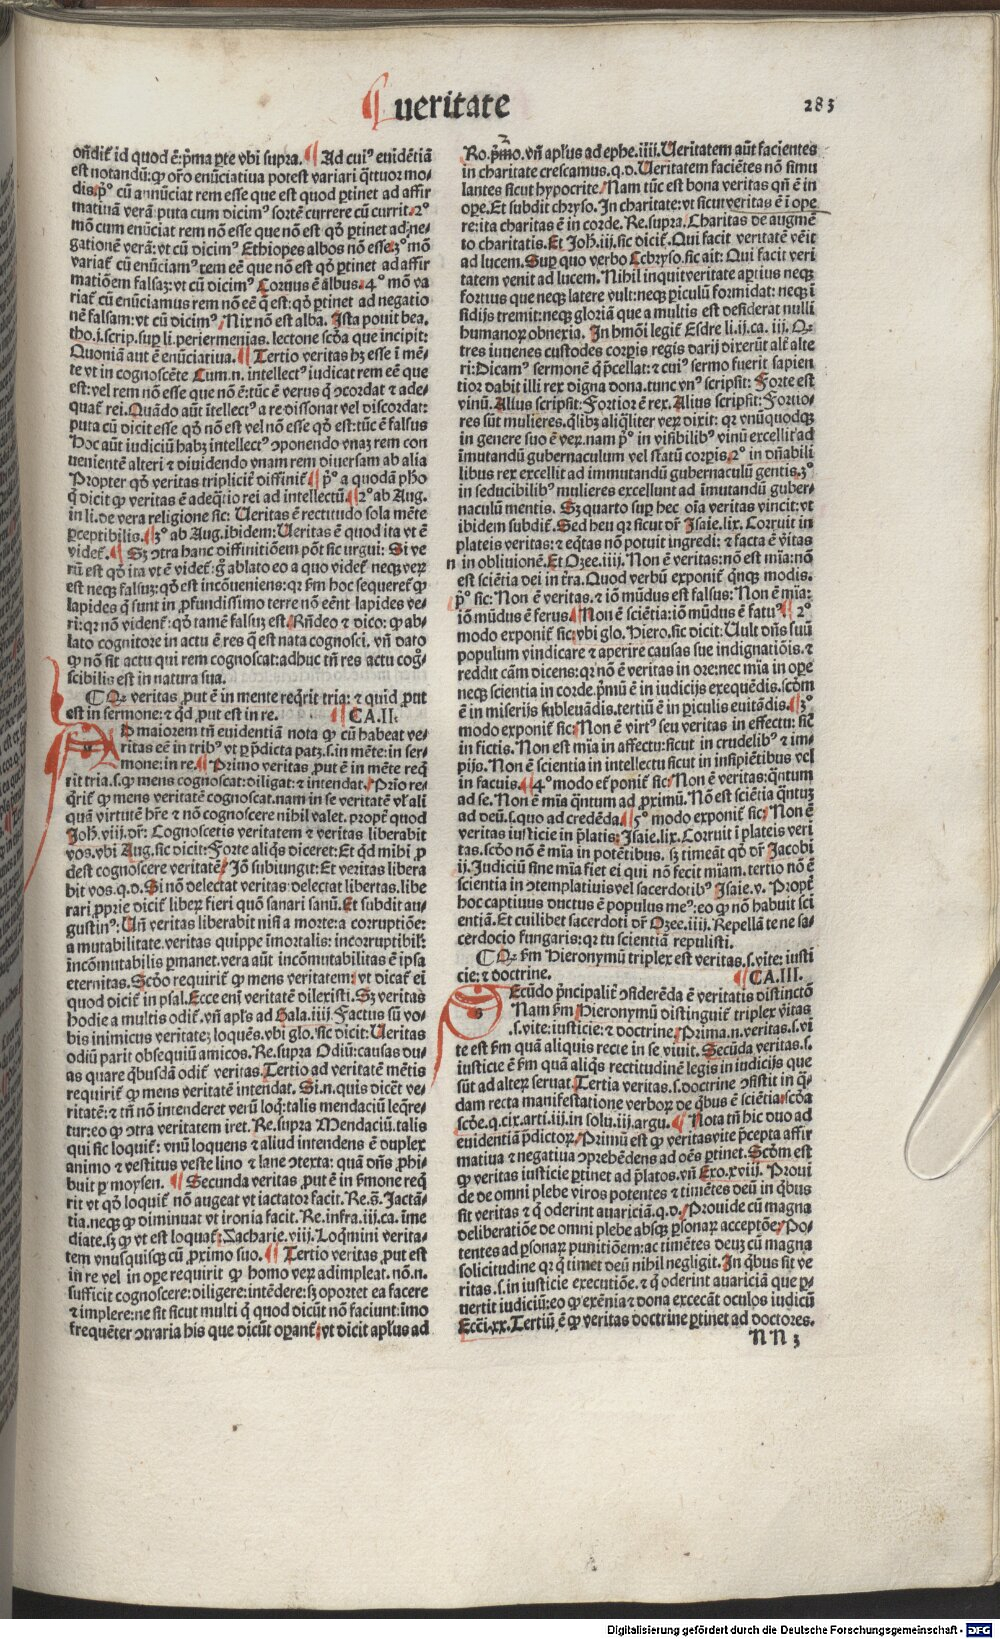 ueritate
283
oñdit̃ id quod ē: p̃ma ꝑte vbi supra. ¶ Ad cuiꝰ euidētiā
est notandū: ꝙ or̃o enūciatiua potest variari q̃ttuor mo-
dis. p̃º cū annūciat rem esse que est quod ꝑtinet ad affir
matiuā verā: puta cum dicimꝰ sortē currere cū currit. 2º
mō cum enūciat rem nō esse que nō est qð ꝑtinet ad ne-
gationē verā: vt cū dicimꝰ Ethiopes albos nō esse. 3º mō
variat̃ cū enūciamꝰ rem eē que nō est qð ꝑtinet ad affir
matiōem falsaꝫ: vt cū dicimꝰ Coruus ē albus. 4º mō va
riat̃ cū enūciamus rem nō eē q̄ est: qð ꝑtinet ad negatio
nē falsam: vt cū dicimꝰ, Nix nō est alba. Ista pouit bea.
tho. i. scrip. sup li. periermenias. lectone scða que incipit:
Quoniā aut ē enūciatiua. ¶ Tertio veritas hꝫ esse ī mē-
te vt in cognoscēte Cum. n. intellectꝰ iudicat rem eē que
est: vel rem nō esse que nō ē: tūc ē verus q̄ ↄcordat ⁊ ade-
quat̃ rei. Quādo aūt ītellectꝰ a re dissonat vel discordat:
puta cū dicit esse qð nō est vel nō esse qð est: tūc ē falsus
Hoc aūt iudiciū habꝫ intellectꝰ ↄponendo vnaꝫ rem con
uenientē alteri ⁊ diuidendo vnam rem diuersam ab alia
Propter qð veritas triplicit̃ diffinit̃ ¶ p̃º a quodā pho
q̄ dicit ꝙ veritas ē adeq̄tio rei ad intellectū. ¶ 2º ab Aug.
in li. de vera religione sic: Veritas ē rectitudo sola mēte
ꝑceptibilis. ¶ 3º ab Aug. ibidem: Veritas ē quod ita vt ē
videt̃. ¶ Sꝫ ↄtra hanc diffinitiōem pōt sic vrgui: Si ve
rū est qð ita vt ē videt̃: g̃ ablato eo a quo videt̃ neqꝫ veꝝ
est neqꝫ falsuꝫ: qð est incōueniens: qꝛ ẜm hoc sequeret̃ ꝙ
lapides q̄ sunt in ꝓfundissimo terre nō eēnt lapides ve-
ri: qꝛ nō vident̃: qð tamē falsuꝫ est. Rñdeo ⁊ dico: ꝙ ab-
lato cognitore in actu ē res q̄ est nata cognosci. vñ dato
ꝙ nō sit actu qui rem cognoscat: adhuc tñ res actu cog̃-
scibilis est in natura sua.
¶ Qꝛ veritas ꝓut ē in mente req̃rit tria: ⁊ quid ꝓut
est in sermone: ⁊ q̃d ꝓut est in re. ¶ CA. II.
a D maiorem tñ euidentiā nota ꝙ cū habeat ve-
ritas eē in tribꝰ vt ꝑ p̃dicta patꝫ. s. in mēte: in ser-
mone: in re. ¶ Primo veritas ꝓut ē in mēte req̃
rit tria. s. ꝙ mens cognoscat: diligat: ⁊ intendat. Prĩo re-
q̃rit̃ ꝙ mens veritatē cognoscat. nam in se veritatē vl̃ ali
quā virtutē hr̃e ⁊ nō cognoscere nihil valet. propt̃ quod
Joh̃. viij. dr̃: Cognoscetis veritatem ⁊ veritas liberabit
vos. vbi Aug. sic dicit: Forte aliq̃s diceret: Et q̃d mihi ꝓ
dest cognoscere veritatē: Jõ subiungit: Et veritas libera
bit vos. q. d. Si nō delectat veritas delectat libertas. libe
rari ꝓprie dicit̃ libeꝝ fieri quō sanari sanū. Et subdit au-
gustinꝰ: Vñ veritas liberabit nisi a morte: a corruptiõe:
a mutabilitate. veritas quippe īmortalis: incorruptibil̃:
īncōmutabilis ꝑmanet. vera aūt incōmutabilitas ē ipsa
eternitas. Scðo requirit̃ ꝙ mens veritatem: vt dicat̃ ei
quod dicit̃ in psal. Ecce enī veritatē dilexisti. Sꝫ veritas
hodie a multis odit̃. vñ apls ad Gala. iiij. Factus sū vo-
bis inimicus veritateꝫ loquēs. vbi glo. sic dicit: Veritas
odiū parit obsequiū amicos. Re. supra Odiū: causas du-
as quare q̃busdā odit̃ veritas. Tertio ad veritatē mētis
requirit̃ ꝙ mens veritatē intendat. Si. n. quis dicēt ve-
ritatē: ⁊ tñ nō intenderet verū loq̃: talis mendaciū leq̃re-
tur: eo ꝙ ↄtra veritatem iret. Re. supra Mendaciū. talis
qui sic loquit̃: vnū loquens ⁊ aliud intendens ē duplex
animo ⁊ vestitus veste lino ⁊ lane ↄtexta: quā dñs ꝓhi-
buit ꝑ moysen. ¶ Secunda veritas ꝓut ē in ẜmone req̃
rit vt qð loquit̃ nō augeat vt iactator facit. Re. s̃. Jactā-
tia. neqꝫ ꝙ diminuat vt ironia facit. Re. infra. iij. ca. īme
diate. sꝫ ꝙ vt est loquat̃: Zacharie. viij. Loq̃mini verita-
tem vnusquisqꝫ cū ꝓximo suo. ¶ Tertio veritas ꝓut est
in re vel in ope requirit ꝙ homo veꝝ adimpleat. nō. n.
sufficit cognoscere: diligere: intēdere: sꝫ oportet ea facere
⁊ implere: ne sit sicut multi q̄ quod dicūt nō faciunt: īmo
frequēter ↄtraria his que dicūt oꝑant̃: vt dicit apl̃us ad
Ro. p̃mo. vñ apl̃us ad ephe. iiij. Veritatem aūt facientes
in charitate crescamus. q. d. Veritatem faciētes nō simu
lantes sicut hypocrite. Nam tūc est bona veritas qñ ē in
oꝑe. Et subdit chryso. In charitate: vt sicut veritas ē ī ope
re: ita charitas ē in corde. Re. supra. Charitas de augmē
to charitatis. Et Joh̃. iij. sic dicit̃. Qui facit veritatē vēit
ad lucem. Suꝑ quo verbo Cchryso. sic ait: Qui facit veri
tatem venit ad lucem. Nihil inquit veritate aꝑtius neqꝫ
fortius que neqꝫ latere vult: neqꝫ ꝑiculū formidat: neqꝫ ī
sidijs tremit: neqꝫ gloriā que a multis est desiderat nulli
humanoꝝ obnexia. In hmōi legit̃ Esdre li. ij. ca. iij. Qꝛ
tres iuuenes custodes corꝑis regis darij dixerūt alt̃ alte
ri: Dicamꝰ sermonē q̄ p̃cellat: ⁊ cuiꝰ sermo fuerit sapien
tior dabit illi rex digna dona. tunc vnꝰ scripsit: Forte est
vinū. Alius scripsit: Fortior ē rex. Alius scripsit: Fortio-
res sūt mulieres. q̃libꝫ aliq̃liter veꝝ dixit: qꝛ vnūquodqꝫ
in genere suo ē veꝝ. nam p̃º in visibilibꝰ vinū excellit ad
īmutandū gubernaculum vel statū corꝑis. 2º in dñabili
libus rex excellit ad immutandū gubernaculū gentis. 3º
in seducibilibꝰ mulieres excellunt ad īmutandū guber-
naculū mentis. Sꝫ quarto suꝑ hec oīa veritas vincit: vt
ibidem subdit̃. Sed heu qꝛ sicut dr̃ Jsaie. lix. Corruit in
plateis veritas: ⁊ eq̃tas nō potuit ingredi: ⁊ facta ē v̄itas
n in obliuionē. Et Ozee. iiij. Non ē veritas: nō est mīa: nō
est sciētia dei in tr̃a. Quod verbū exponit̃ q̃nqꝫ modis.
p̃º sic: Non ē veritas. ⁊ iõ mūdus est falsus: Non ē mīa:
iõ mūdus ē ferus. ¶ Non ē sciētia: iõ mūdus ē fatuꝰ. ¶ 2º
modo exponit̃ sic: vbi glo. Hiero. sic dicit: Vult dñs suū
populum vindicare ⁊ aperire causas sue indignatiōis. ⁊
reddit cãm dicens: qꝛ nō ē veritas in ore: nec mīa in opē
neqꝫ scientia in corde. p̃mū ē in iudicijs exequēdis. scðm
ē in miserijs subleuādis. tertiū ē in ꝑiculis euitādis. ¶ 3º
modo exponit̃ sic: Non ē virtꝰ seu veritas in effectu: sic̃
in fictis. Non est mīa in affectu: sicut in crudelibꝰ ⁊ im-
pijs. Non ē scientia in intellectu sicut in insipiētibus vel
in facuis. ¶ 4º modo et̃ ponit̃ sic: Non ē veritas: q̃ntum
ad se. Non ē mīa q̃ntum ad ꝓximū. Nō est sciētia q̃ntuꝫ
ad deū. s. quo ad credēda. ¶ 5º modo exponit̃ sic: Non ē
veritas iusticie in p̃latis: Jsaie. lix. Corruit ī plateis veri
tas. scðo nō ē mīa in potētibus. sꝫ timeāt qð dr̃ Jacobi
ij. Judiciū sine mīa fiet ei qui nō fecit mīam. tertio nō ē
scientia in ↄtemplatiuis vel sacerdotibꝰ Jsaie. v. Propt̃
hoc captiuus ductus ē populus meꝰ: eo ꝙ nō habuit sci
entiā. Et cuilibet sacerdoti dr̃ Ozee. iiij. Repellā te ne sa-
cerdocio fungaris: qꝛ tu scientiā repulisti.
¶ Qꝛ ẜm Hieronymū triplex est veritas. s. vite: iusti
cie: ⁊ doctrine. ¶ CA. III.
s Ecūdo p̃ncipalit̃ ↄsiderēda ē veritatis distinctō
Nam ẜm Hieronymū distinguit̃ triplex v̄itas
.s. vite: iusticie: ⁊ doctrine. Prima. n. veritas. s. vi
te est ẜm quā aliquis recte in se viuit. Secūda veritas. s.
iusticie ē ẜm quā aliq̃s rectitudinē legis in iudicijs que
sūt ad alteꝝ seruat. Tertia veritas. s. doctrine ↄsistit in q̃-
dam recta manifestatione verboꝝ de q̃bus ē sciētia: scða
scðe. q. cix. arti. iij. in solu. iij. argu. ¶ Nota tñ hic duo ad
euidentiā p̃dictoꝝ. Primū est ꝙ veritas vite p̃cepta affir
matiua ⁊ negatiua ↄprehēdens ad oēs ꝑtinet. Scðm est
ꝙ veritas iusticie ꝑtinet ad p̃latos. vñ Exo. xviij. Proui
de de omni plebe viros potentes ⁊ timētes deū in q̃bus
sit veritas ⁊ q̄ oderint auariciā. q. d. Prouide cū magna
deliberatiōe de omni plebe absqꝫ ꝑsonaꝝ acceptōe. Po-
tentes ad ꝑsonaꝝ punitiōem: ac timētes deuꝫ cū magna
solicitudine qꝛ q̄ timet deū nihil negligit. In q̃bus sit ve
ritas. s. in iusticie executiōe. ⁊ q̄ oderint auariciā que ꝑ-
uertit iudiciū: eo ꝙ exēnia ⁊ dona excecāt oculos iudicū
Ecc̃i. xx. Tertiū ē ꝙ veritas doctrine ꝑtinet ad doctores.
NN 3
Digitalisierung gefördert durch die Deutsche Forschungsgemeinschaft - DFG